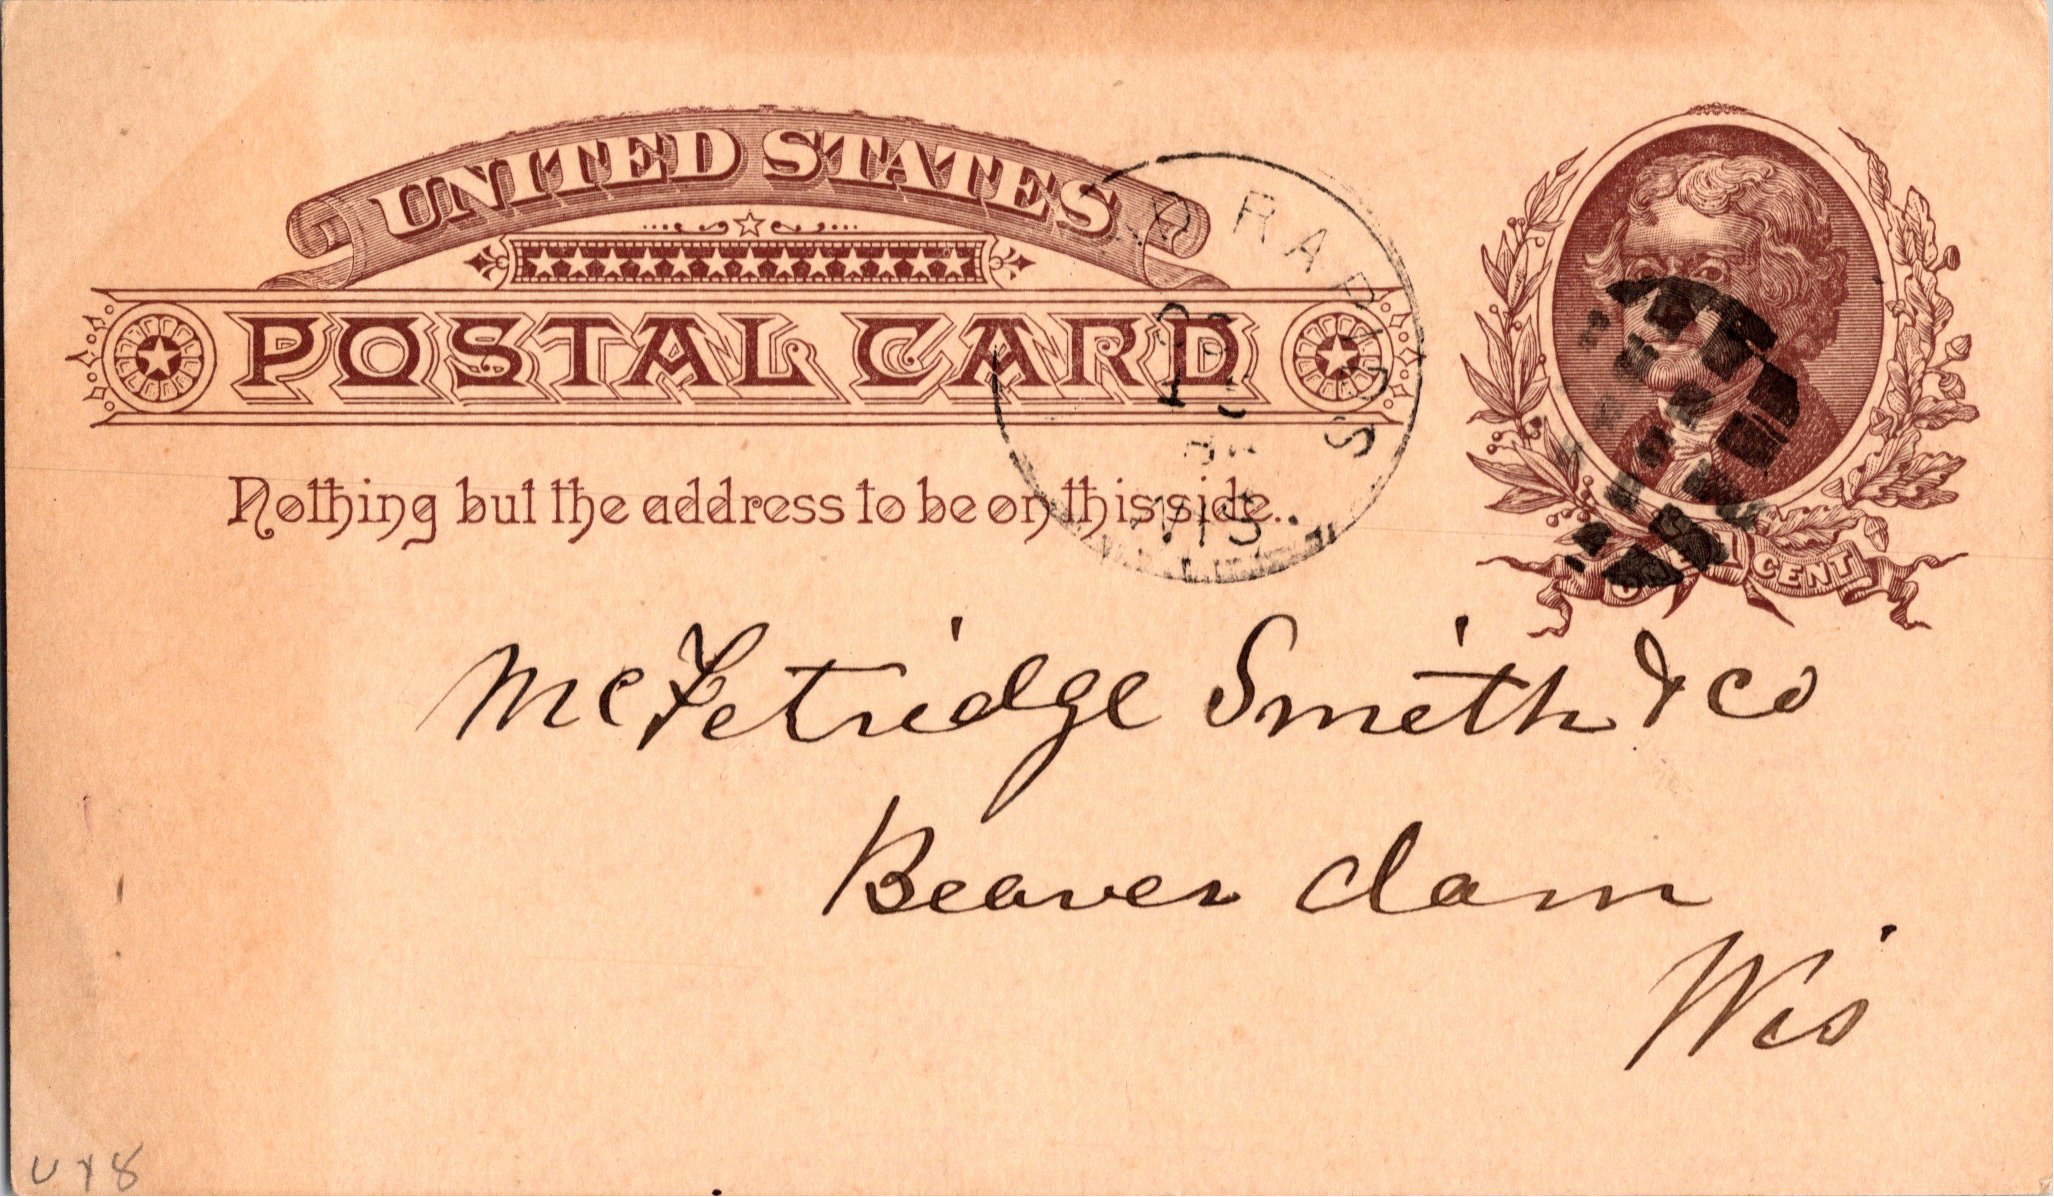 UNITED STATES
POSTAL CARD
Nothing but the address to be on this side.
D RAPIDS
WIS.
CENT
McFetridge Smith & Co
Beaver dam
Wis
UY8